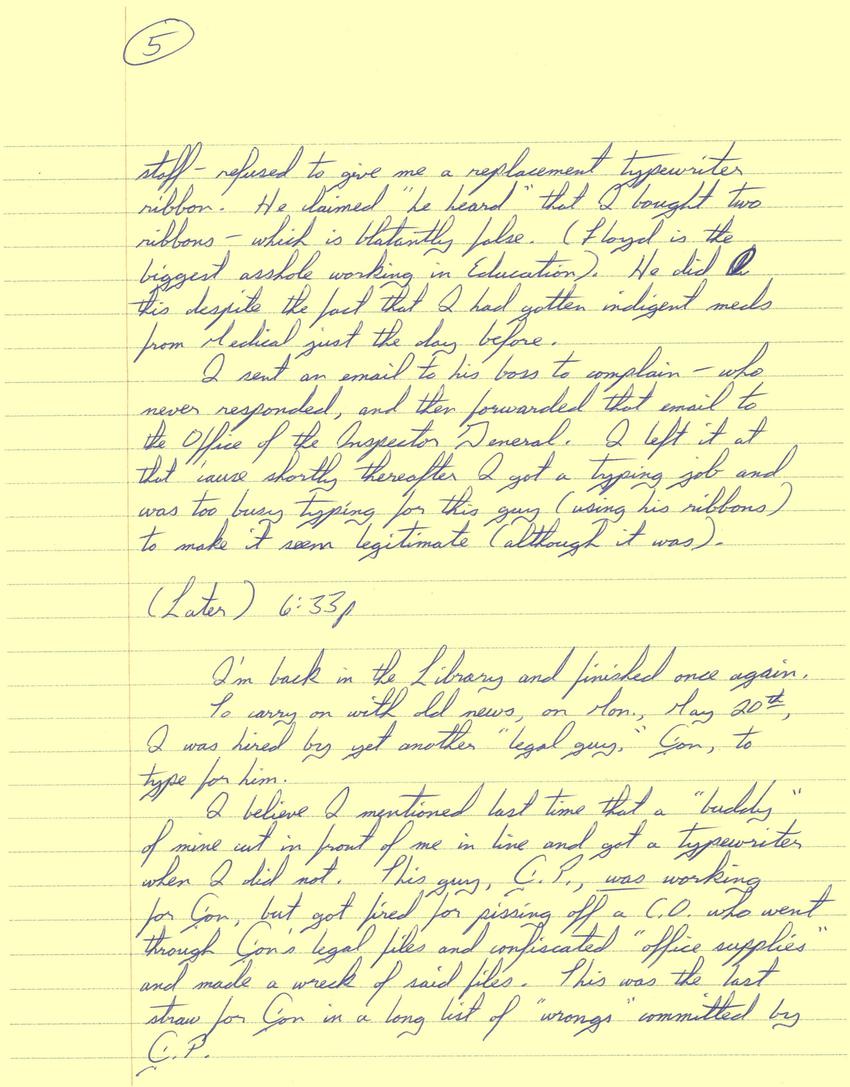 5
staff – refused to give me a replacement typewriter
ribbon. He claimed "he heard" that I bought two
ribbons – which is blatantly false. (Floyd is the
biggest asshole working in Education). He did
this despite the fact that I had gotten indigent meds
from Medical just the day before.
I sent an email to his boss to complain – who
never responded, and then forwarded that email to
the Office of the Inspector General. I left it at
that 'cause shortly thereafter I got a typing job and
was too busy typing for this guy (using his ribbons)
to make it seem legitimate (although it was).
(Later) 6:33p
I'm back in the Library and finished once again.
To carry on with old news, on Mon., May 20th,
I was hired by yet another "legal guy," Con, to
type for him.
I believe I mentioned last time that a "buddy"
of mine cut in front of me in line and got a typewriter
when I did not. This guy, C.P., was working
for Con, but got fired for pissing off a C.O. who went
through Con's legal files and confiscated "office supplies"
and made a wreck of said files. This was the last
straw for Con in a long list of "wrongs" committed by
C.P.